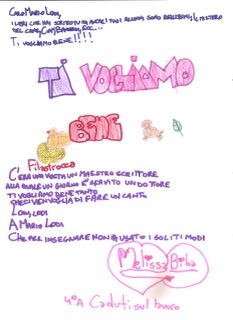 Caro Mario Lodi,
I libri che hai scritto tu ai tuoi alunni sono bellissimi, il mistero
del cane, Cipì, Bandiera, ecc....
Ti vogliamo bene!!!!
Ti VOGLIAMO
BENE
Filastrocca
C'era una volta un maestro scrittore
alla quale un giorno è servito un dottore
Ti vogliamo bene tanto
che ci vien voglia di fare un canto
Lodi, Lodi
A Mario Lodi
Che per insegnare non ha usato i soliti modi
Melissa Biba
4°A Caduti sul lavoro